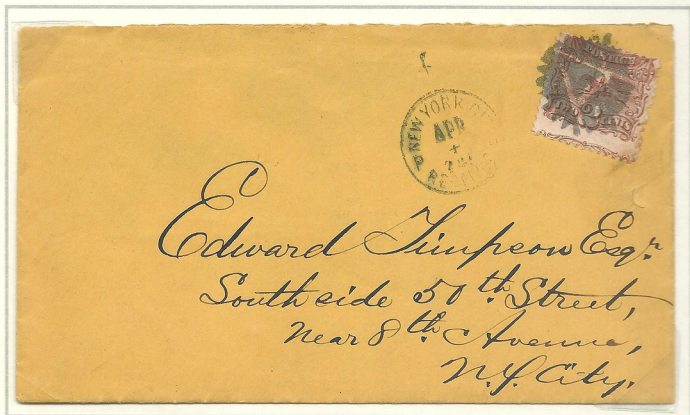 NEW YORK
APR
POSTAGE
Edward Timpson Esqr.
South side 50th Street,
Near 8th Avenue,
N.Y. City.